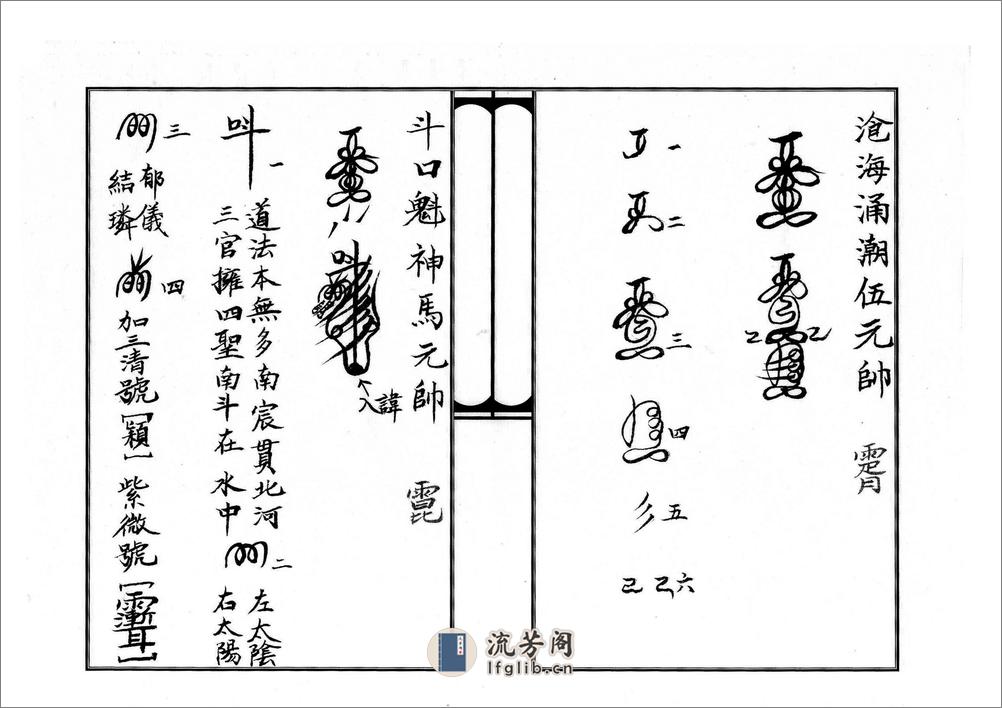 滄海涌潮伍元帥
一
二
三
四
五
六
斗口魁神馬元帥
入諱
一
道法本無多南宸貫北河
三官擁四聖南斗在水中
二
左太陰
右太陽
三
郁儀
結璘
四
加三清號[穎]紫微號
流芳阁
lfglib.cn